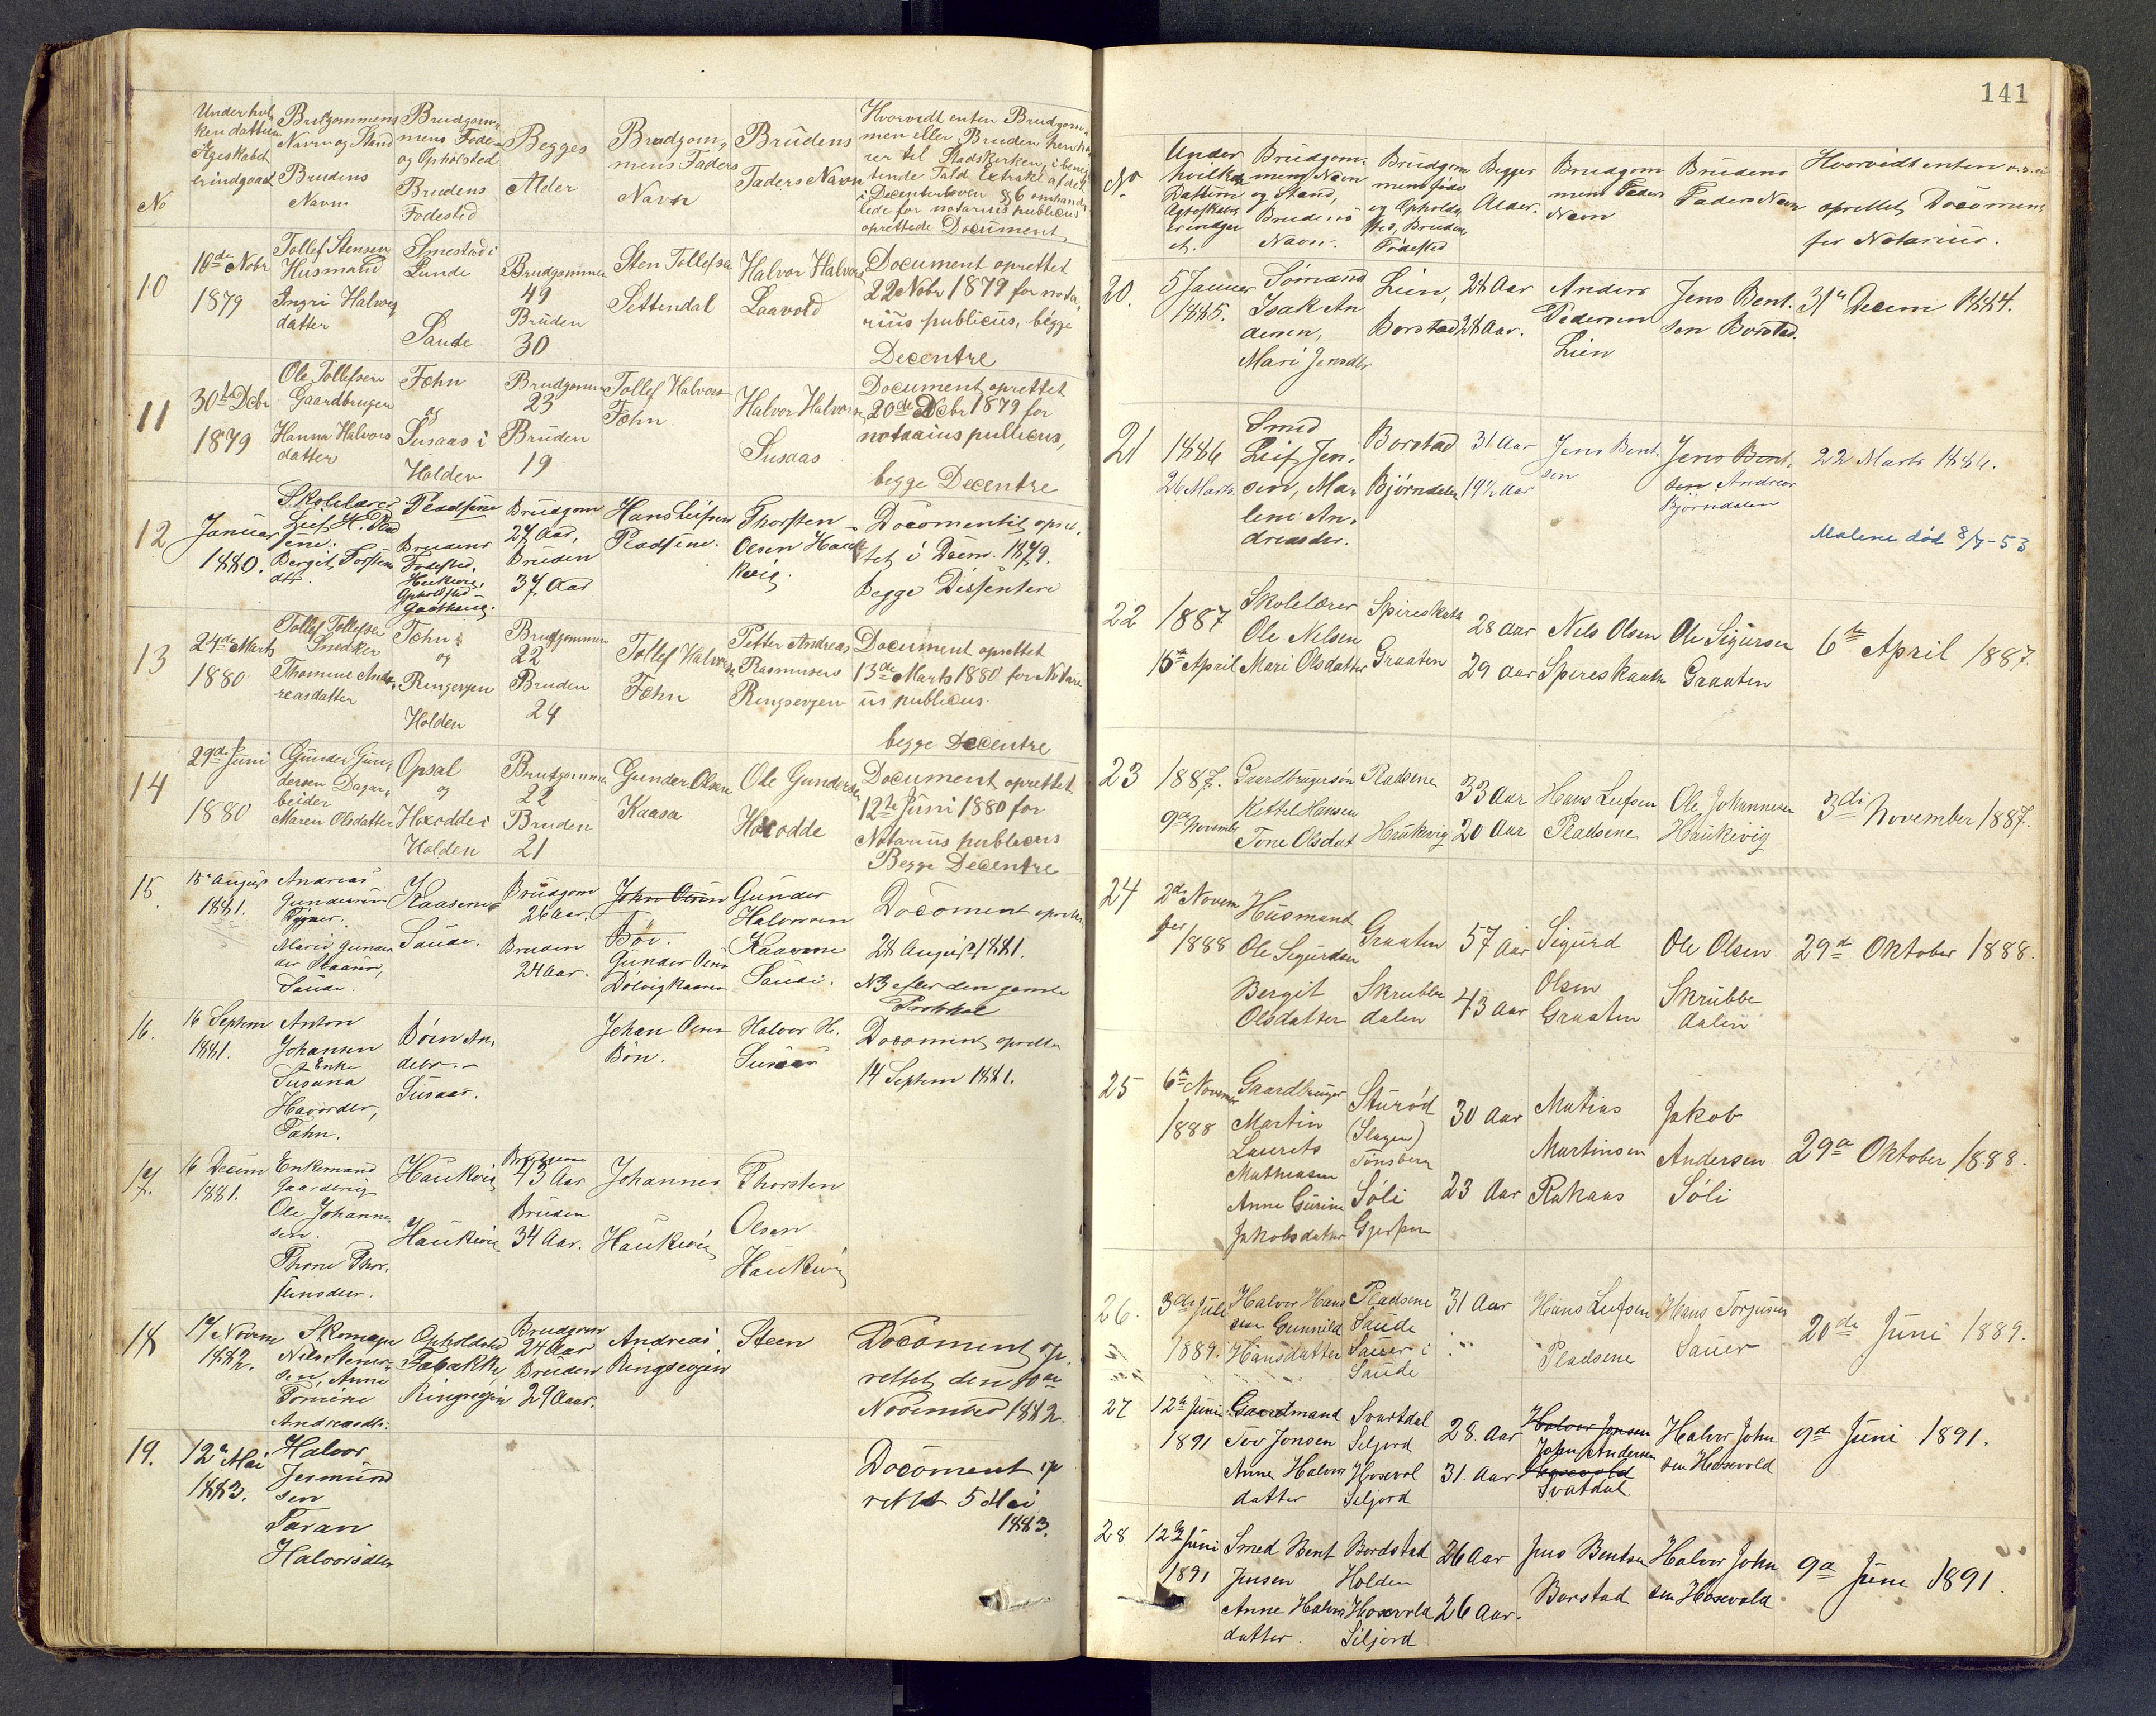 No
Underhvil
ken dattum
Ægteskabet
erindgaad
Brudgommens
Navn og Stand
Brudens
Navn
Brudgom,
mens Føde
og Opholsted
Brudens
Fødested
Begges
Alder
Brudgom,
mens Faders
Navn
Brudens
Faders Navn
Hvorvidt enten Brudgom,
men eller Bruden henhø
rer til Stadskirken, i bene
tende Fald Extrakt af det
i Decenterloven §6 omhand
lede for notarius publicus
oprettede Document
10
10de Nobr
1879
Tollef Stensen
Husmand
Ingri Halvor
datter
Smestad i
Lunde
Saude
Brudgommen
49
Bruden
30
Sten Tollefsen
Settendal
Halvor Halvors
Laavold
Document oprettet
22 Nobr 1879 for nota
rius publicus, begge
Decentre
11
30te Debr
1879
Ole Tollefsen
Gaardbruger
Hanna Halvors
datter
Fæhn
og
Susaas i
Holden
Brudgommen
23
Bruden
19
Tollef Halvors
Fæhn
Halvor Halvorsn
Susaas
Document oprettet
20de Debr 1879 for
notraius publicus,
begge Decentre
12
Januar
1880.
Skolelærer
Leif H. Plad
sene.
Bergit Torstens
dtr.
Pladsene
Brudens
Fødested,
Haukvig,
Opholsted
Brudgom
27 Aar,
Bruden
37 Aar
Hans Leifsen
Pladsene.
Thorsten
Olsen Hauk
kvig.
Documentit opret,
tet i Decm. 1879.
Begge Dissentere
13
24de Marts
1880
Tollef Tollefsen
Snedker
Thomine And
reasdatter
Fæhn
og
Ringsevjen
Holden
Brudgommen
22
Bruden
24
Tollef Halvors
Fæhn
Petter Andreas
Rasmusen
Ringsevjen
Document oprettet
13de Marts 1880 for Notari
us publicus
begge Decentre
14
29de Juni
1880
Gunder Gun,
dersen Dagar,
beider
Maren Olsdatter
Opsal
og
Hoxodde i
Holden
Brudgommen
22
Bruden
21
Gunder Olsen
Kaasa
Ole Gunders
Hoxodde
Document oprettet
12te Juni 1880 for
Notarius publicus
Begge Decentre
15.
18 August
1881.
Andreas
Gundersen
Marie Gunders
Saude.
Kaasene
Saude.
Brudgom
26 Aar.
Bruden
24 Aar.
John Olsen
Bøe.
Gunder Olsen
Gunder
Halvorsen
Kaasene
Saude.
Document opretten
28 August 1881.
NB efter den gamle
Protokol
16.
16 Septem
1881.
Anton
Johansen
Enke
Susana
Havorder,
Fæhn.
Bøen An,
debr.
Susaas.
Johan Olsen
Bøn.
Halvor H.
Susaas
Document oprettet
14 Septem 1881.
17.
16 Decem
1881.
Enkemand
Gaardeier
Ole Johanne
sen.
Thone Thor,
stensdtr.
Haukvig
Haukvig
Brudgom
43 Aar
Bruden
34 Aar.
Johannes
Haukvig
Thorsten
Olsen
Haukvig
18
17 Novem
1882.
Skomager
Nils Stener
sen, Anne
Tomine
Andreasdtr.
Opholdsted
Fabakk
Ringsevjen
Brudgom
24 Aar
Bruden
29 Aar.
Andreas
Ringsevjen
Steen
Document op,
rettet den 10de
November 1882.
19.
12te Mai
1883.
Halvor
Jermund
sen
Taran
Halvorsdtr
Document op
rettet 5 Mai
1883.
141
No
Under
hvilket
Dattum
Ægteskabet
erindgaa
et.
Brudgom.
mens Navn
og Stand,
Brudens
Navn.
Brudgom
mens føde
og Opholds,
Sted, Brudens
Fødested
Begges
Alder.
Brudgom
mens Faders
Navn
Brudens
Faders Navn
Hvorvidt enten
oprettet Documen,
for Notarius.
20.
5 Januar
1885.
Sømand
Isak An
dersen,
Mari Jensdtr
Lien,
Borstad
28 Aar
28 Aar.
Anders
Pedersen
Lien
Jens Bent.
sen Borstad.
31te Decem 1884.
21
1886
26 Marts.
Smed
Leif Jen,
sen, Ma,
lene An,
dreasdtr.
Borstad
Bjørndalen
31 Aar
19½ Aar
Jens Bent
sen
Jens Bent,
sen Andreas
Bjørndalen
22 Marts 1886.
Malene død 8/7-53
22
1887
15de April
Skolelærer
Ole Nilsen
Mari Olsdatter
Spireskaata
Graaten
28 Aar
29 Aar
Nils Olsen
Spireskaata
Ole Sigursen
Graaten
6te April 1887.
23
1887.
9de November
Gaardbrugersøn
Kettel Hansen
Tone Olsdat
Pladsene
Haukvig
33 Aar
20 Aar
Hans Leifsen
Pladsene
Ole Johannesen
Haukivig
3die November 1887.
24
2de Novem
ber
1888
Husmand
Ole Sigurdsen
Bergit
Olsdatter
Graaten
Skrubbe
dalen
57 Aar
43 Aar
Sigurd
Olsen
Graaten
Ole Olsen
Skrubbe
dalen
29de Oktober 1888.
25
6te November
1888
Gaardbruger
Martin
Laurits
Mathiasen
Anne Gurine
Jakobsdatter
Sturød
(Slagen)
Tønsberg
Søli
Gjerpen
30 Aar
23 Aar
Matias
Martinsen
Rakaas
Jakob
Andersen
Søli
29de Oktober 1888.
26.
3die Juli
1889.
Halvor Hans
sen Gunnild
Hansdatter
Pladsene
Saude
Sauer i
Saude
31 Aar
Hans Leifsen
Pladsene
Hans Torjusen
Sauer
20de Juni 1889.
27
12te Juni
1891
Gaardmand
Tov Jonsen
Anne Halvors
datter
Svartdal
Seljord
Hoxevol
Seljord
28. Aar
31. Aar
Halvor Jonsen
John Andersen
Hoxevold
Svatdal
Halvor John
sen Hoxevold
9de Juni 1891.
28
12te Juni
1891
Smed Bent
Jensen
Anne Halvors
datter.
Bordstad
Holden
Hoxevold
Seljord
26 Aar
26 Aar.
Jens Bentsen
Borstad
Halvor John
sen Hoxevold
9de Juni 1891.